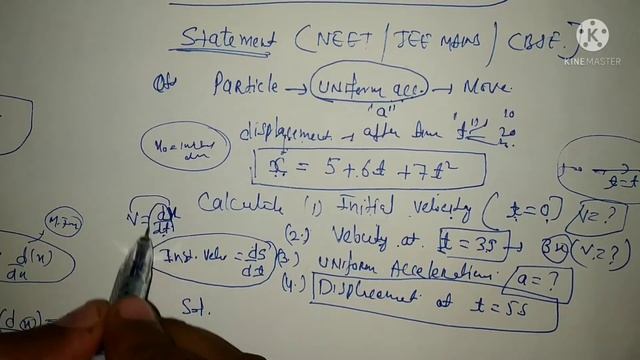 Statement (NEET / JEE MAINS / CBSE.)
K
KINEMASTER
Particle → UNIFORM acc. → Move
"a"
displacement → after time "t"
10
20
x = 5 + 6t + 7t²
t = t
V = dx/dt
Calculate (1) Initial velocity (t = 0) V = ?
(2.) Velocity at t = 3s → (V = ?)
d(x)
dx
Inst. Velo = ds/dt
(3.) UNIFORM Acceleration. a = ?
(4.) Displacement at t = 5s
Sol.